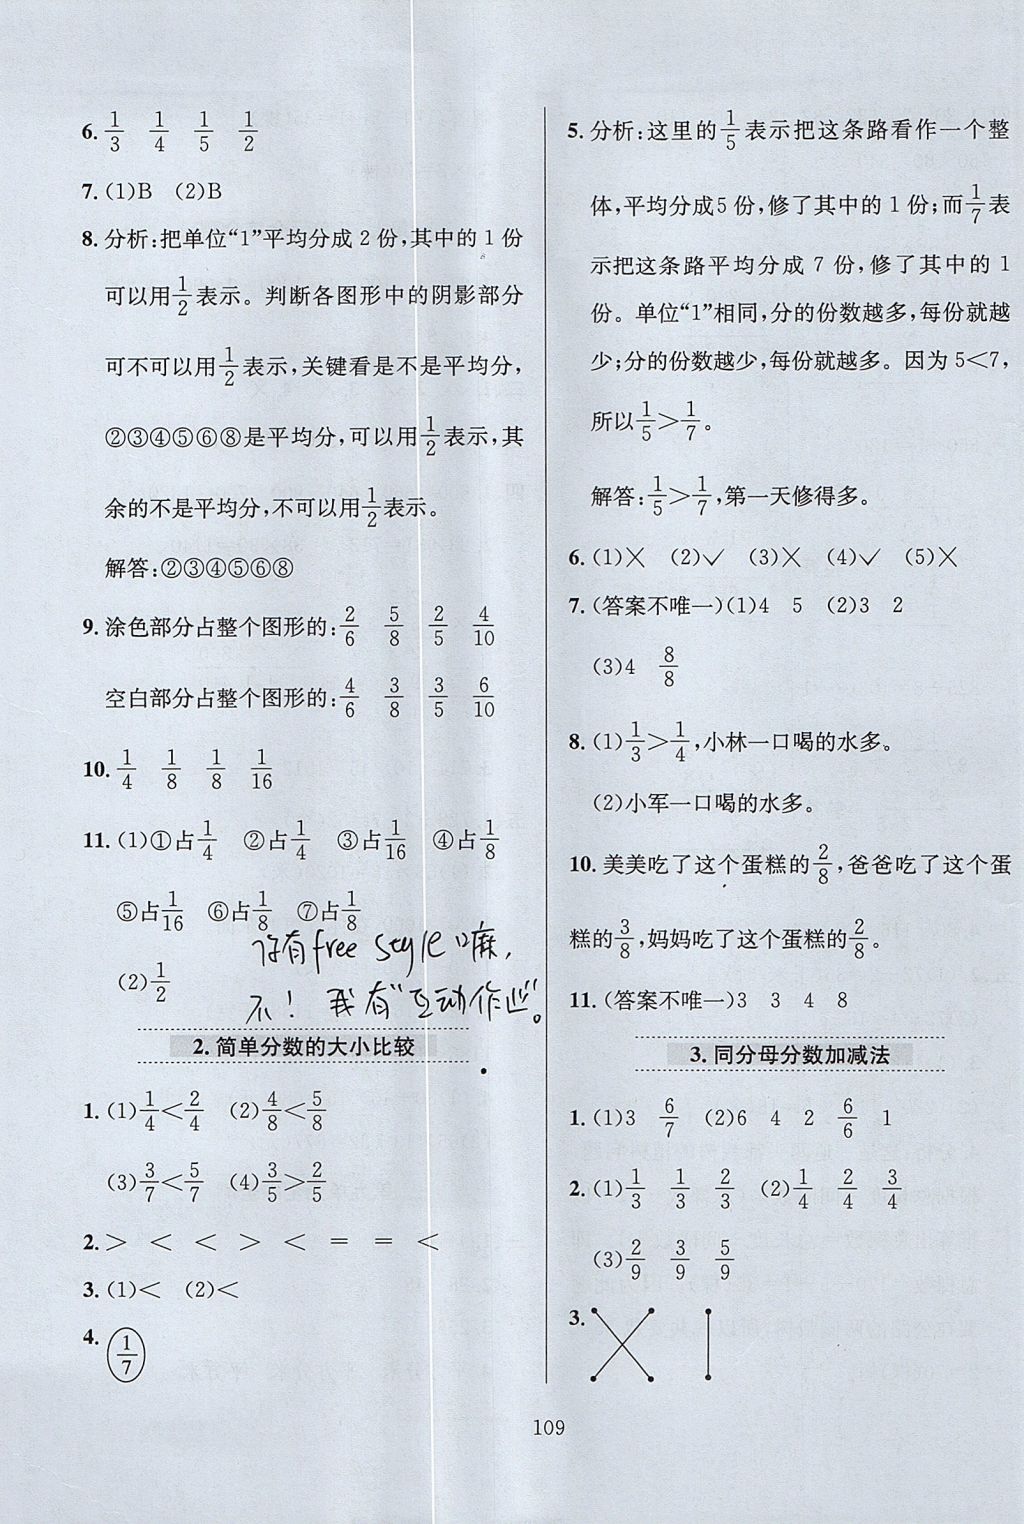 6. 1/3 1/4 1/5 1/2
7. (1)B (2)B
8. 分析:把单位“1”平均分成 2 份,其中的 1 份
可以用1/2表示。判断各图形中的阴影部分
可不可以用1/2表示,关键看是不是平均分,
②③④⑤⑥⑧是平均分,可以用1/2表示,其
余的不是平均分,不可以用1/2表示。
解答:②③④⑤⑥⑧
9. 涂色部分占整个图形的:2/6 5/8 2/5 4/10
空白部分占整个图形的:4/6 3/8 3/5 6/10
10. 1/4 1/8 1/8 1/16
11. (1)①占1/4 ②占1/4 ③占1/16 ④占1/8
⑤占1/16 ⑥占1/8 ⑦占1/8
(2)1/2
你有 free style 嘛,
不! 我有“互动作业”。
2. 简单分数的大小比较
1. (1)1/4<2/4 (2)4/8<5/8
(3)3/7<5/7 (4)3/5>2/5
2. > < < > < = = <
3. (1)< (2)<
4. 1/7
5. 分析:这里的1/5表示把这条路看作一个整
体,平均分成5 份,修了其中的 1 份;而1/7表
示把这条路平均分成 7 份,修了其中的 1
份。单位“1”相同,分的份数越多,每份就越
少;分的份数越少,每份就越多。因为 5<7,
所以1/5>1/7。
解答:1/5>1/7,第一天修得多。
6. (1)✕ (2)✓ (3)✕ (4)✓ (5)✕
7. (答案不唯一)(1)4 5 (2)3 2
(3)4 8/8
8. (1)1/3>1/4,小林一口喝的水多。
(2)小军一口喝的水多。
10. 美美吃了这个蛋糕的2/8,爸爸吃了这个蛋
糕的3/8,妈妈吃了这个蛋糕的2/8。
11. (答案不唯一)3 3 4 8
3. 同分母分数加减法
1. (1)3 6/7 (2)6 4 2 6/6 1
2. (1)1/3 1/3 2/3 (2)1/4 2/4 3/4
(3)2/9 3/9 5/9
3.
109